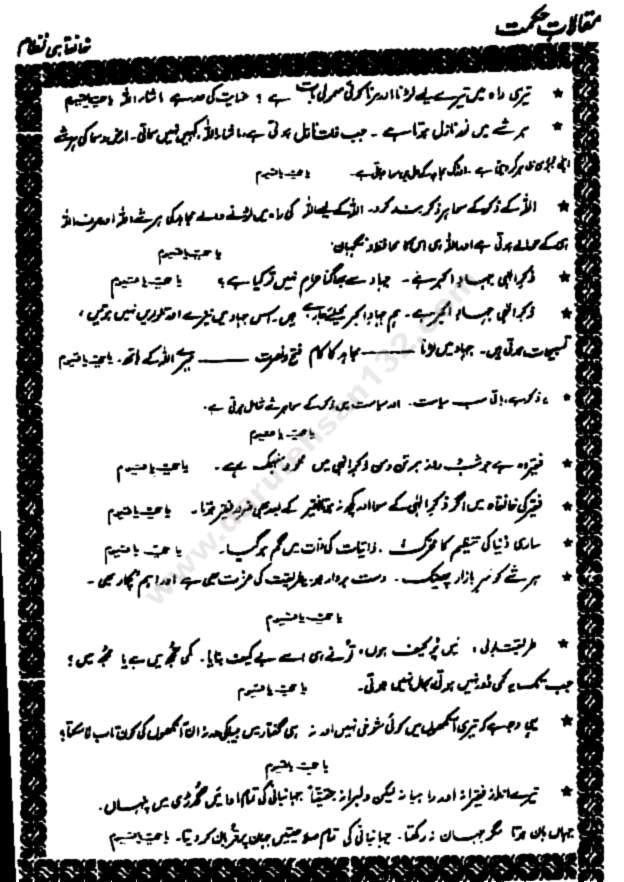 مقالات حکمت
خانقاہی نظام
* تیری راہ میں تیرے لیے لڑنا اور مرنا کوئی معمولی بات ہے ؟ عنایت کی حد ہے ماشاء اللہ یا حیّ یا قیوم
* ہر شے میں نور نازل ہوتا ہے ۔ جب ذات نازل ہوتی ہے، ماشاء اللہ کہیں نہیں سماتی۔ ارض و سما کی ہر شے
یا حیّ یا قیوم
* اللہ کے ذکر کے سوا ہر ذکر بند کردو۔ اللہ کے لیے اللہ کی راہ میں لڑنے والے مجاہد کی ہر شے اللہ اور صرف اللہ
ہی کے حوالے ہوتی ہے اور اللہ ہی اس کا محافظ و نگہبان۔ یا حیّ یا قیوم
* ذکرِ الٰہی جہادِ اکبر ہے ۔ جہاد سے بھاگنا حرام نہیں تو کیا ہے ؟ یا حیّ یا قیوم
* ذکرِ الٰہی جہادِ اکبر ہے ۔ ہم جہادِ اکبر کیلئے جا رہے ہیں۔ اس جہاد میں نیزے اور تلواریں نہیں ہوتیں،
تسبیحات ہوتی ہیں۔ جہاد میں لڑنا ——— مجاہد کا کام فتح و نصرت ——— میرے اللہ کے ہاتھ۔ یا حیّ یا قیوم
* یہ ذکر ہے، باقی سب سیاست۔ اور سیاست میں ذکر کے سوا ہر شے شامل ہوتی ہے۔
یا حیّ یا قیوم
* فقیر وہ ہے جو شب و روز ہر تن و من ذکرِ الٰہی میں محو و منہمک رہے۔ یا حیّ یا قیوم
* فقیر کی خانقاہ میں اگر ذکرِ الٰہی کے سوا اور کچھ نہ ہوتا فقیر کے بعد بھی ضرور فقیر ہوتا۔ یا حیّ یا قیوم
* ساری دُنیا کی تنظیم کا محرک ۔ ذاتیات کی ذات میں گم ہو گیا۔ یا حیّ یا قیوم
* ہر شے کو سرِ بازار پھینک۔ دست بردار ہو۔ یہ طریقت کی عزت بھی ہے اور اہم پکار بھی۔
یا حیّ یا قیوم
* طریقت بولی : میں پُر کیف ہوں، تو نے ہی اسے بے کیف بنایا۔ کمی تجھ میں ہے یا مجھ میں ؟
جب تک یہ کمی دُور نہیں ہوتی بحال نہیں ہوتی۔ یا حیّ یا قیوم
* یہی وجہ ہے کہ تیری آنکھوں میں کوئی شوخی نہیں اور نہ ہی گفتار میں بیباکی ورنہ ان آنکھوں کی کون تاب لا سکتا؟
یا حیّ یا قیوم
* تیرے انداز فقیرانہ اور راہبانہ لیکن دلبرانہ حقیقتاً جہانبانی کی تمام ادائیں گدڑی میں پنہاں۔
جہاں بان ہوتا مگر جہان نہ رکھتا۔ جہانبانی کی تمام صلاحیتیں جہان پر قربان کر دیتا۔ یا حیّ یا قیوم
www.darulehsan132.com